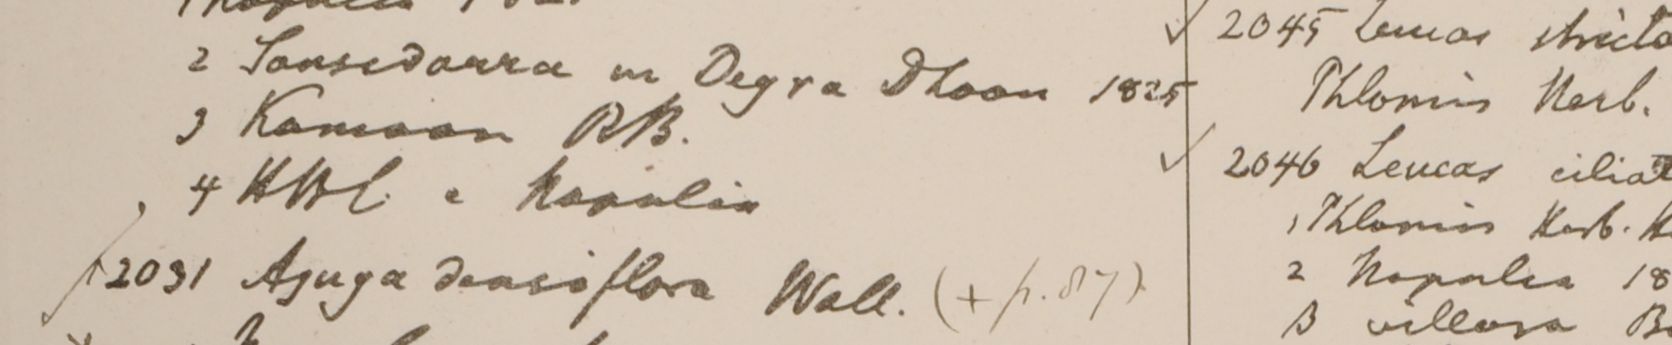 2 Sansedarra in Degra Dhoon 1825
3 Kamaon RB.
4 HBC. e Napalia
2031 Ajuga densiflora Wall. (+ p. 87)
2045 Leucas stricta
Phlomis Herb.
2046 Leucas ciliat
1 Phlomis Herb. H
2 Napalia 18
B villosa